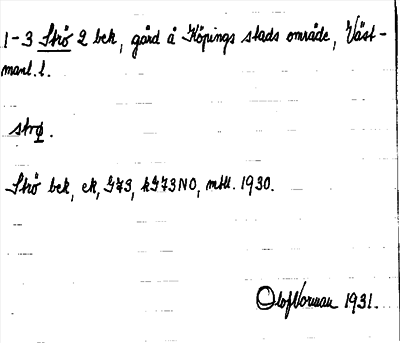 1-3 Strö 2 bek, gård å Köpings stads område, Väst-
manl. l.
strø̄.
Strö bek, ek, G73, kG73NO, mtll. 1930.
Olof Norman 1931.